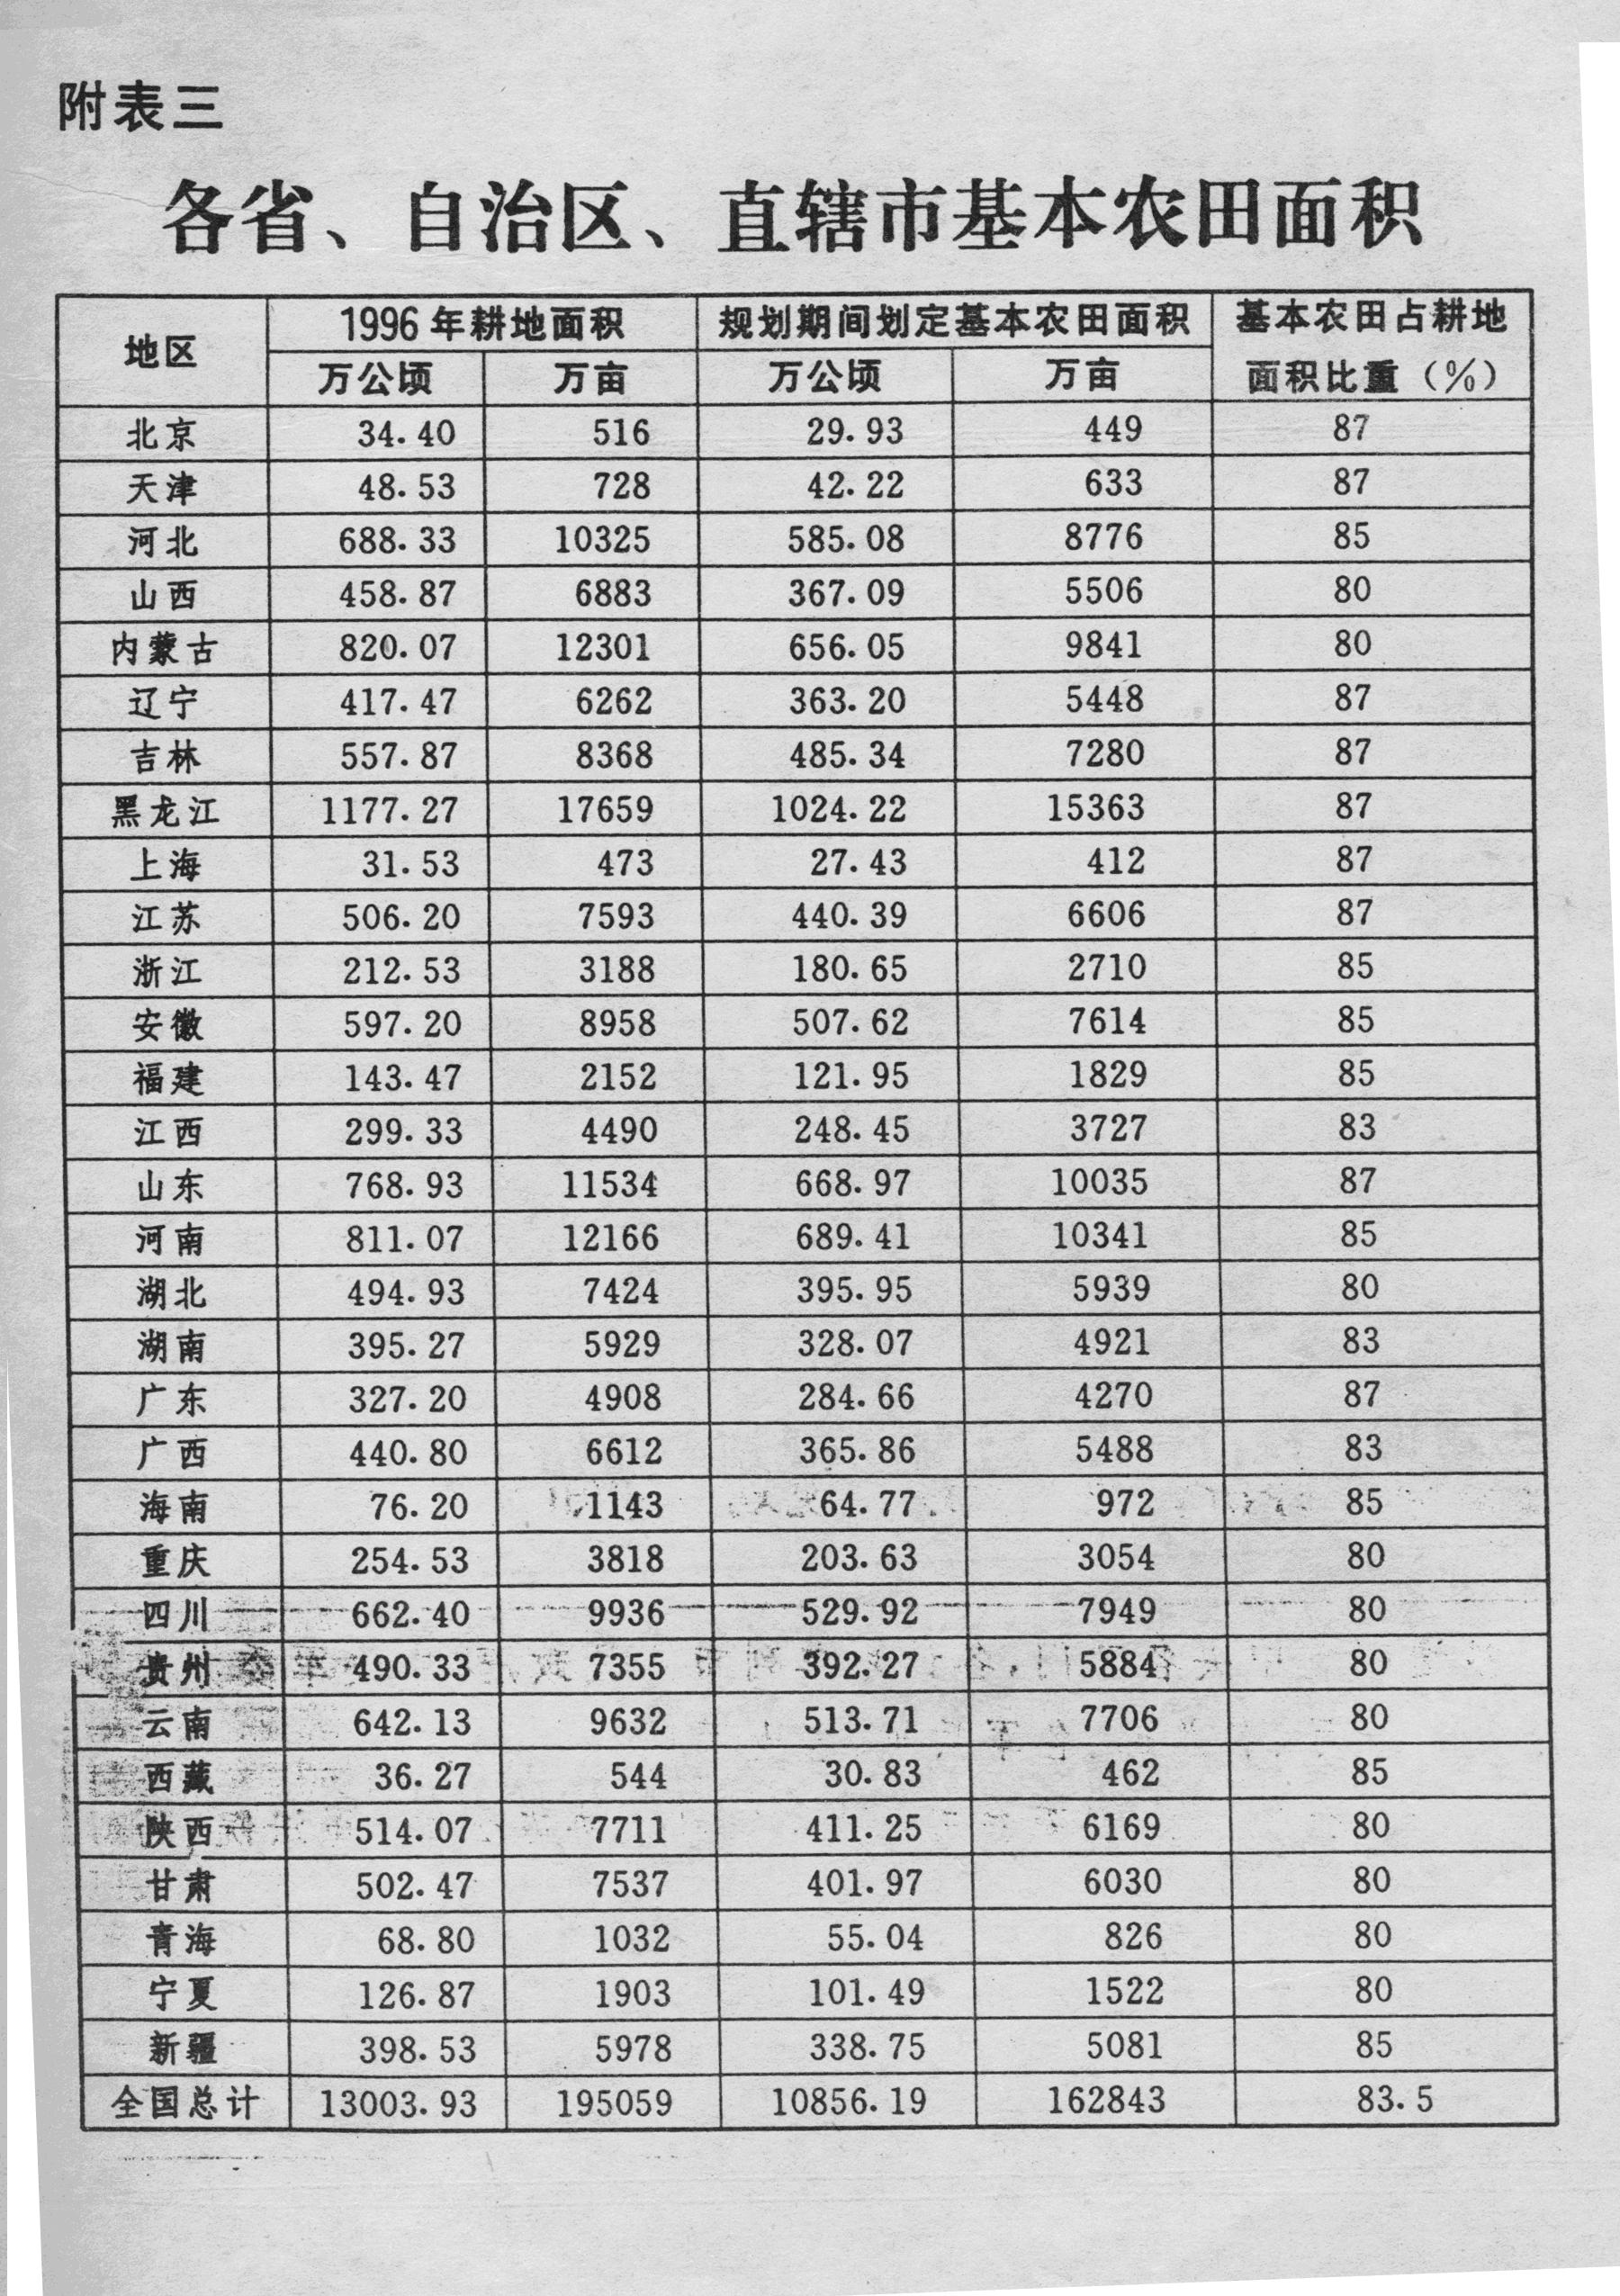 附表三
各省、自治区、直辖市基本农田面积
地区 1996年耕地面积 规划期间划定基本农田面积 基本农田占耕地面积比重(%)
万公顷 万亩 万公顷 万亩
北京 34.40 516 29.93 449 87
天津 48.53 728 42.22 633 87
河北 688.33 10325 585.08 8776 85
山西 458.87 6883 367.09 5506 80
内蒙古 820.07 12301 656.05 9841 80
辽宁 417.47 6262 363.20 5448 87
吉林 557.87 8368 485.34 7280 87
黑龙江 1177.27 17659 1024.22 15363 87
上海 31.53 473 27.43 412 87
江苏 506.20 7593 440.39 6606 87
浙江 212.53 3188 180.65 2710 85
安徽 597.20 8958 507.62 7614 85
福建 143.47 2152 121.95 1829 85
江西 299.33 4490 248.45 3727 83
山东 768.93 11534 668.97 10035 87
河南 811.07 12166 689.41 10341 85
湖北 494.93 7424 395.95 5939 80
湖南 395.27 5929 328.07 4921 83
广东 327.20 4908 284.66 4270 87
广西 440.80 6612 365.86 5488 83
海南 76.20 1143 64.77 972 85
重庆 254.53 3818 203.63 3054 80
四川 662.40 9936 529.92 7949 80
贵州 490.33 7355 392.27 5884 80
云南 642.13 9632 513.71 7706 80
西藏 36.27 544 30.83 462 85
陕西 514.07 7711 411.25 6169 80
甘肃 502.47 7537 401.97 6030 80
青海 68.80 1032 55.04 826 80
宁夏 126.87 1903 101.49 1522 80
新疆 398.53 5978 338.75 5081 85
全国总计 13003.93 195059 10856.19 162843 83.5